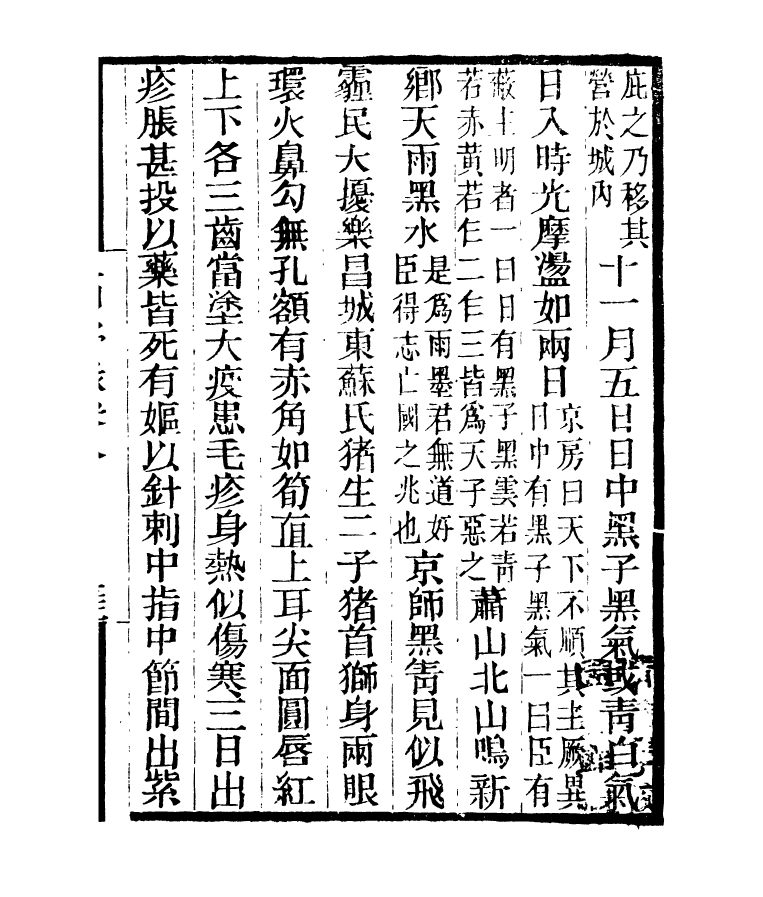 庇之乃移其營於城內十一月五日日中黑子黑氣或靑白氣
日入時光摩盪如兩日京房曰天下不順其主厥異日中有黑子黑氣一曰臣有
蔽主明者一曰日有黑子黑雲若靑若赤黃若乍二乍三皆爲天子惡之蕭山北山鳴新
鄉天雨黑水是爲雨墨君無道好臣得志亡國之兆也京師黑眚見似飛
霾民大擾樂昌城東蘇氏猪生二子猪首獅身兩眼
環火鼻勾無孔額有赤角如筍直上耳尖面圓唇紅
上下各三齒當塗大疫患毛疹身熱似傷寒三日出
疹脹甚投以藥皆死有嫗以針刺中指中節間出紫